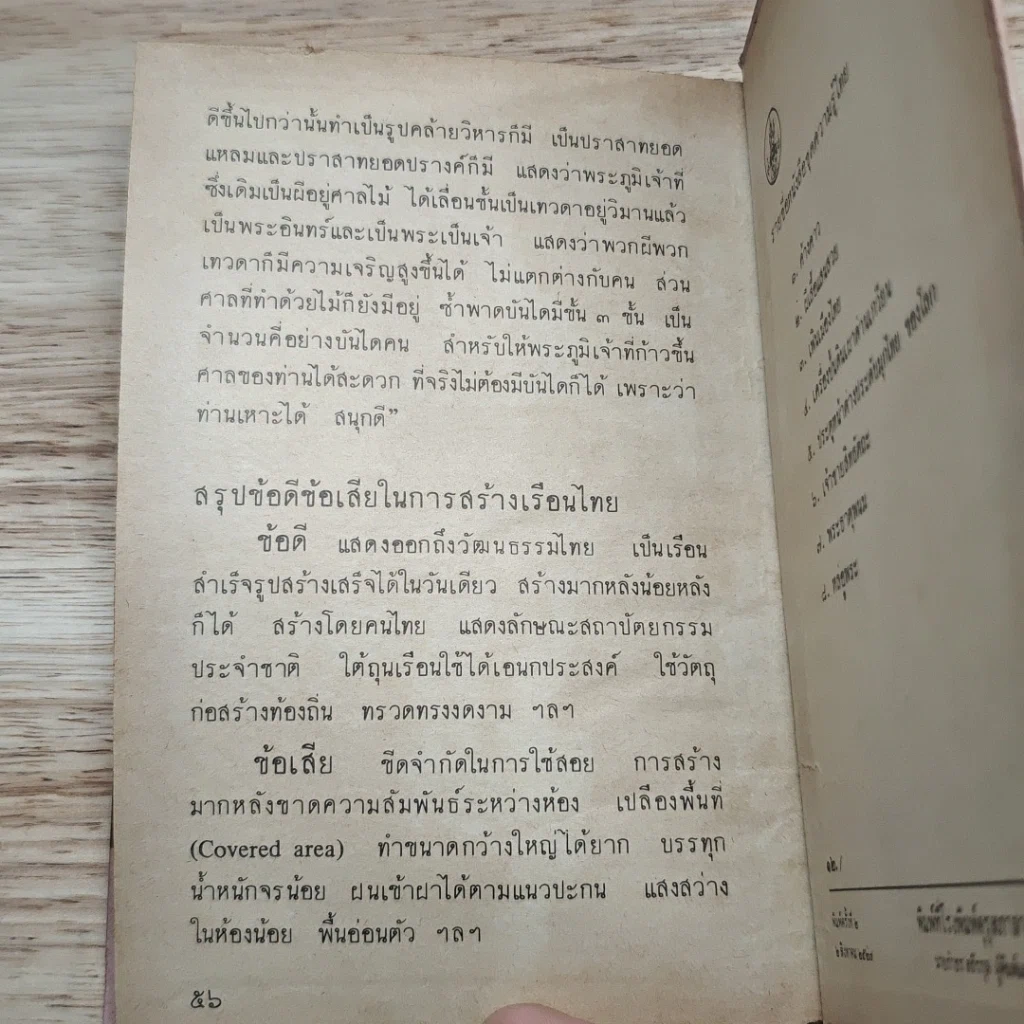 ดีขึ้นไปกว่านั้นทำเป็นรูปคล้ายวิหารก็มี เป็นปราสาทยอด
แหลมและปราสาทยอดปรางค์ก็มี แสดงว่าพระภูมิเจ้าที่
ซึ่งเดิมเป็นผีอยู่ศาลไม้ ได้เลื่อนชั้นเป็นเทวดาอยู่วิมานแล้ว
เป็นพระอินทร์และเป็นพระเป็นเจ้า แสดงว่าพวกผีพวก
เทวดาก็มีความเจริญสูงขึ้นได้ ไม่แตกต่างกับคน ส่วน
ศาลที่ทำด้วยไม้ก็ยังมีอยู่ ซ้ำพาดบันไดมีขั้น ๓ ขั้น เป็น
จำนวนคี่อย่างบันไดคน สำหรับให้พระภูมิเจ้าที่ก้าวขึ้น
ศาลของท่านได้สะดวก ที่จริงไม่ต้องมีบันไดก็ได้ เพราะว่า
ท่านเหาะได้ สนุกดี”
สรุปข้อดีข้อเสียในการสร้างเรือนไทย
ข้อดี แสดงออกถึงวัฒนธรรมไทย เป็นเรือน
สำเร็จรูปสร้างเสร็จได้ในวันเดียว สร้างมากหลังน้อยหลัง
ก็ได้ สร้างโดยคนไทย แสดงลักษณะสถาปัตยกรรม
ประจำชาติ ใต้ถุนเรือนใช้ได้เอนกประสงค์ ใช้วัตถุ
ก่อสร้างท้องถิ่น ทรวดทรงงดงาม ฯลฯ
ข้อเสีย ขีดจำกัดในการใช้สอย การสร้าง
มากหลังขาดความสัมพันธ์ระหว่างห้อง เปลืองพื้นที่
(Covered area) ทำขนาดกว้างใหญ่ได้ยาก บรรทุก
น้ำหนักจรน้อย ฝนเข้าฝาได้ตามแนวปะกน แสงสว่าง
ในห้องน้อย พื้นอ่อนตัว ฯลฯ
๕๖
๑. ค้างคาว
๗. พระธาตุพนม
๘. หล่อพระ
พิมพ์ครั้งที่ ๒